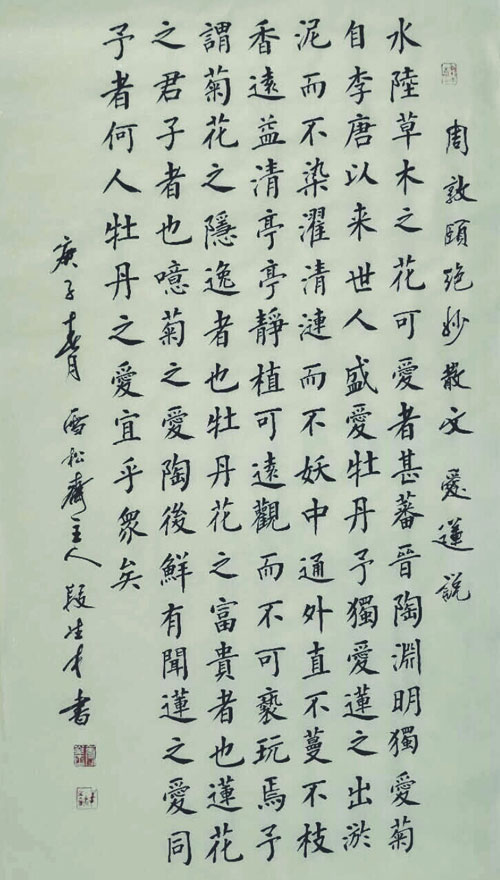 周敦頤绝妙散文 愛蓮説
水陸草木之花可愛者甚蕃晉陶淵明獨愛菊
自李唐以来世人盛愛牡丹予獨愛蓮之出淤
泥而不染濯清漣而不妖中通外直不蔓不枝
香遠益清亭亭靜植可遠觀而不可褻玩焉予
謂菊花之隱逸者也牡丹花之富貴者也蓮花
之君子者也噫菊之愛陶後鮮有聞蓮之愛同
予者何人牡丹之愛宜乎衆矣
庚子春月 雪松齋主人段生才書